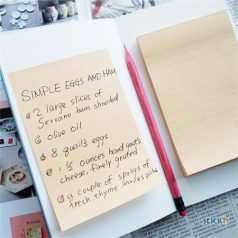 SIMPLE EGGS AND HAM
2 large slices of
Serrano ham shredded
olive oil
8 quail's eggs
1 ½ ounces hard goat's
cheese, finely grated
a couple of sprigs of
fresh thyme, leaves picked